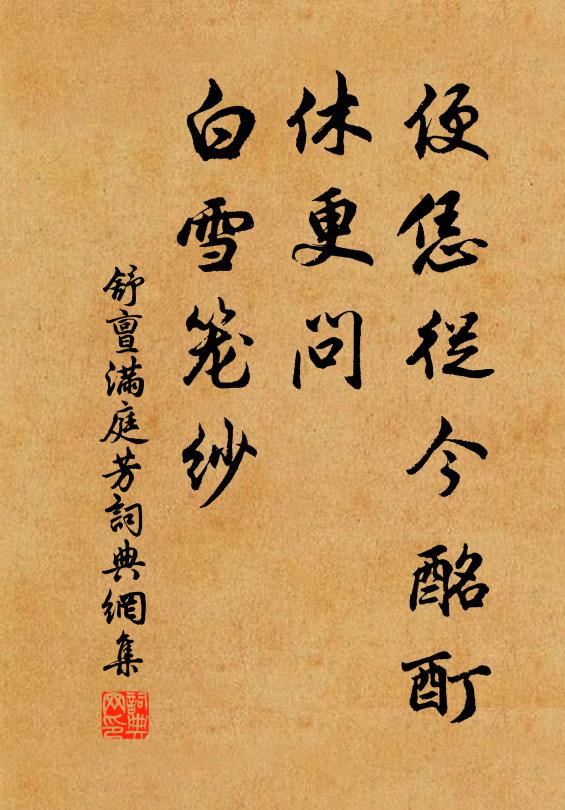 便恁從今酩酊
休更問
白雪笼紗
舒亶滿庭芳詞典網集
詞典网印